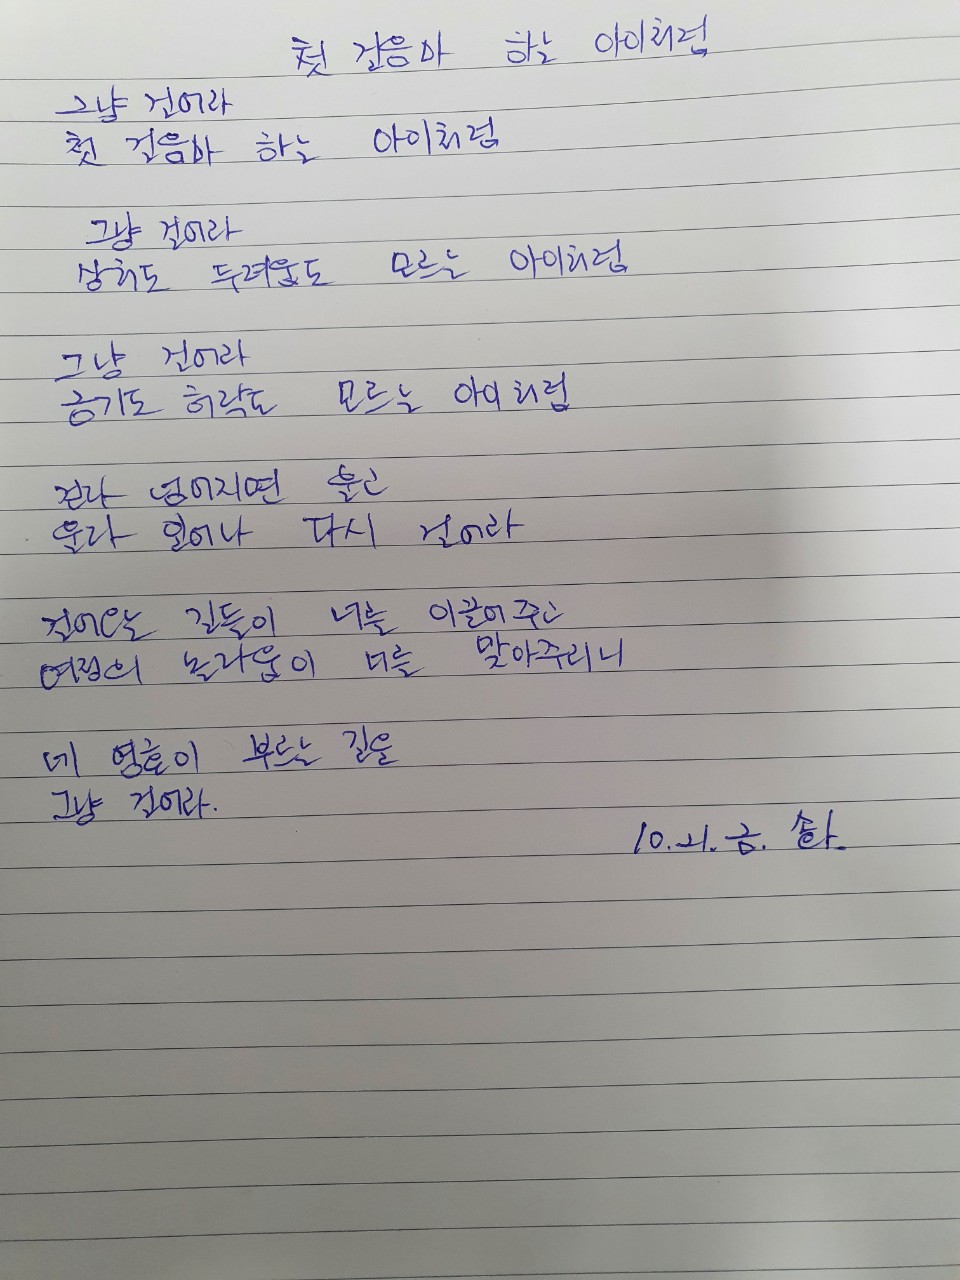 첫 걸음마 하는 아이처럼
그냥 걸어라
첫 걸음마 하는 아이처럼
그냥 걸어라
상처도 두려움도 모르는 아이처럼
그냥 걸어라
금기도 허락도 모르는 아이처럼
걷다 넘어지면 울고
울다 일어나 다시 걸어라
걸어 길들이 너를 이끌어주고
여정의 놀라움이 너를 맞아주리니
네 영혼이 부르는 길을
그냥 걸어라.
10. 21. 금.